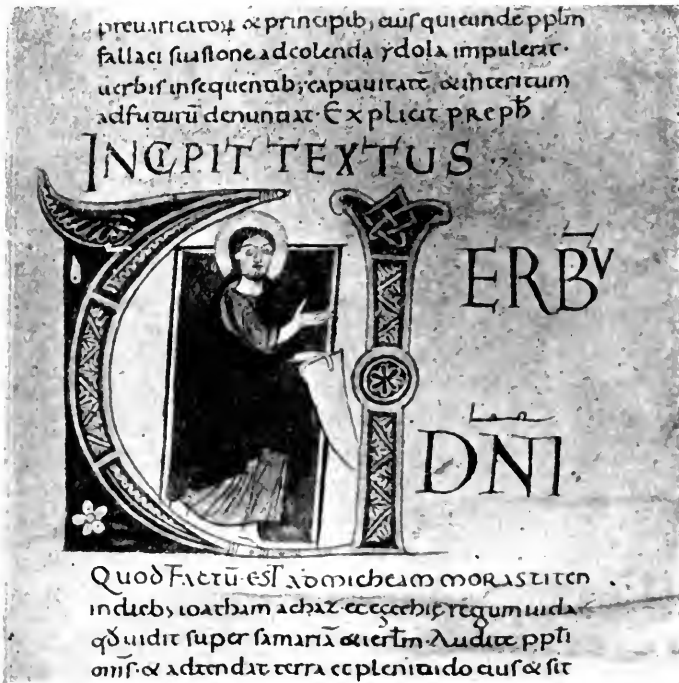 preuaricatoꝝ & principib; eius qui eunde pplm
fallaci suasione ad colenda ydola impulerat·
uerbis insequentib; captiuitatē & interitum
adfuturū denuntiat· Explicit preph
INCIPIT TEXTUS
UERBV̄
DN̄I
Quod Factū est ad micheam morastiten
indieb; ioatham achaz· et ezechie regum iuda
qd̄ uidit super samariā & ierłm· Audite ppłi
om̄s· & adtendat terra et plenitudo eius & sit